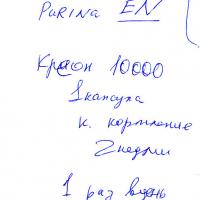 Purina EN
Креон 10000
1 капсула
к. кормление
2 недели
1 раз в день